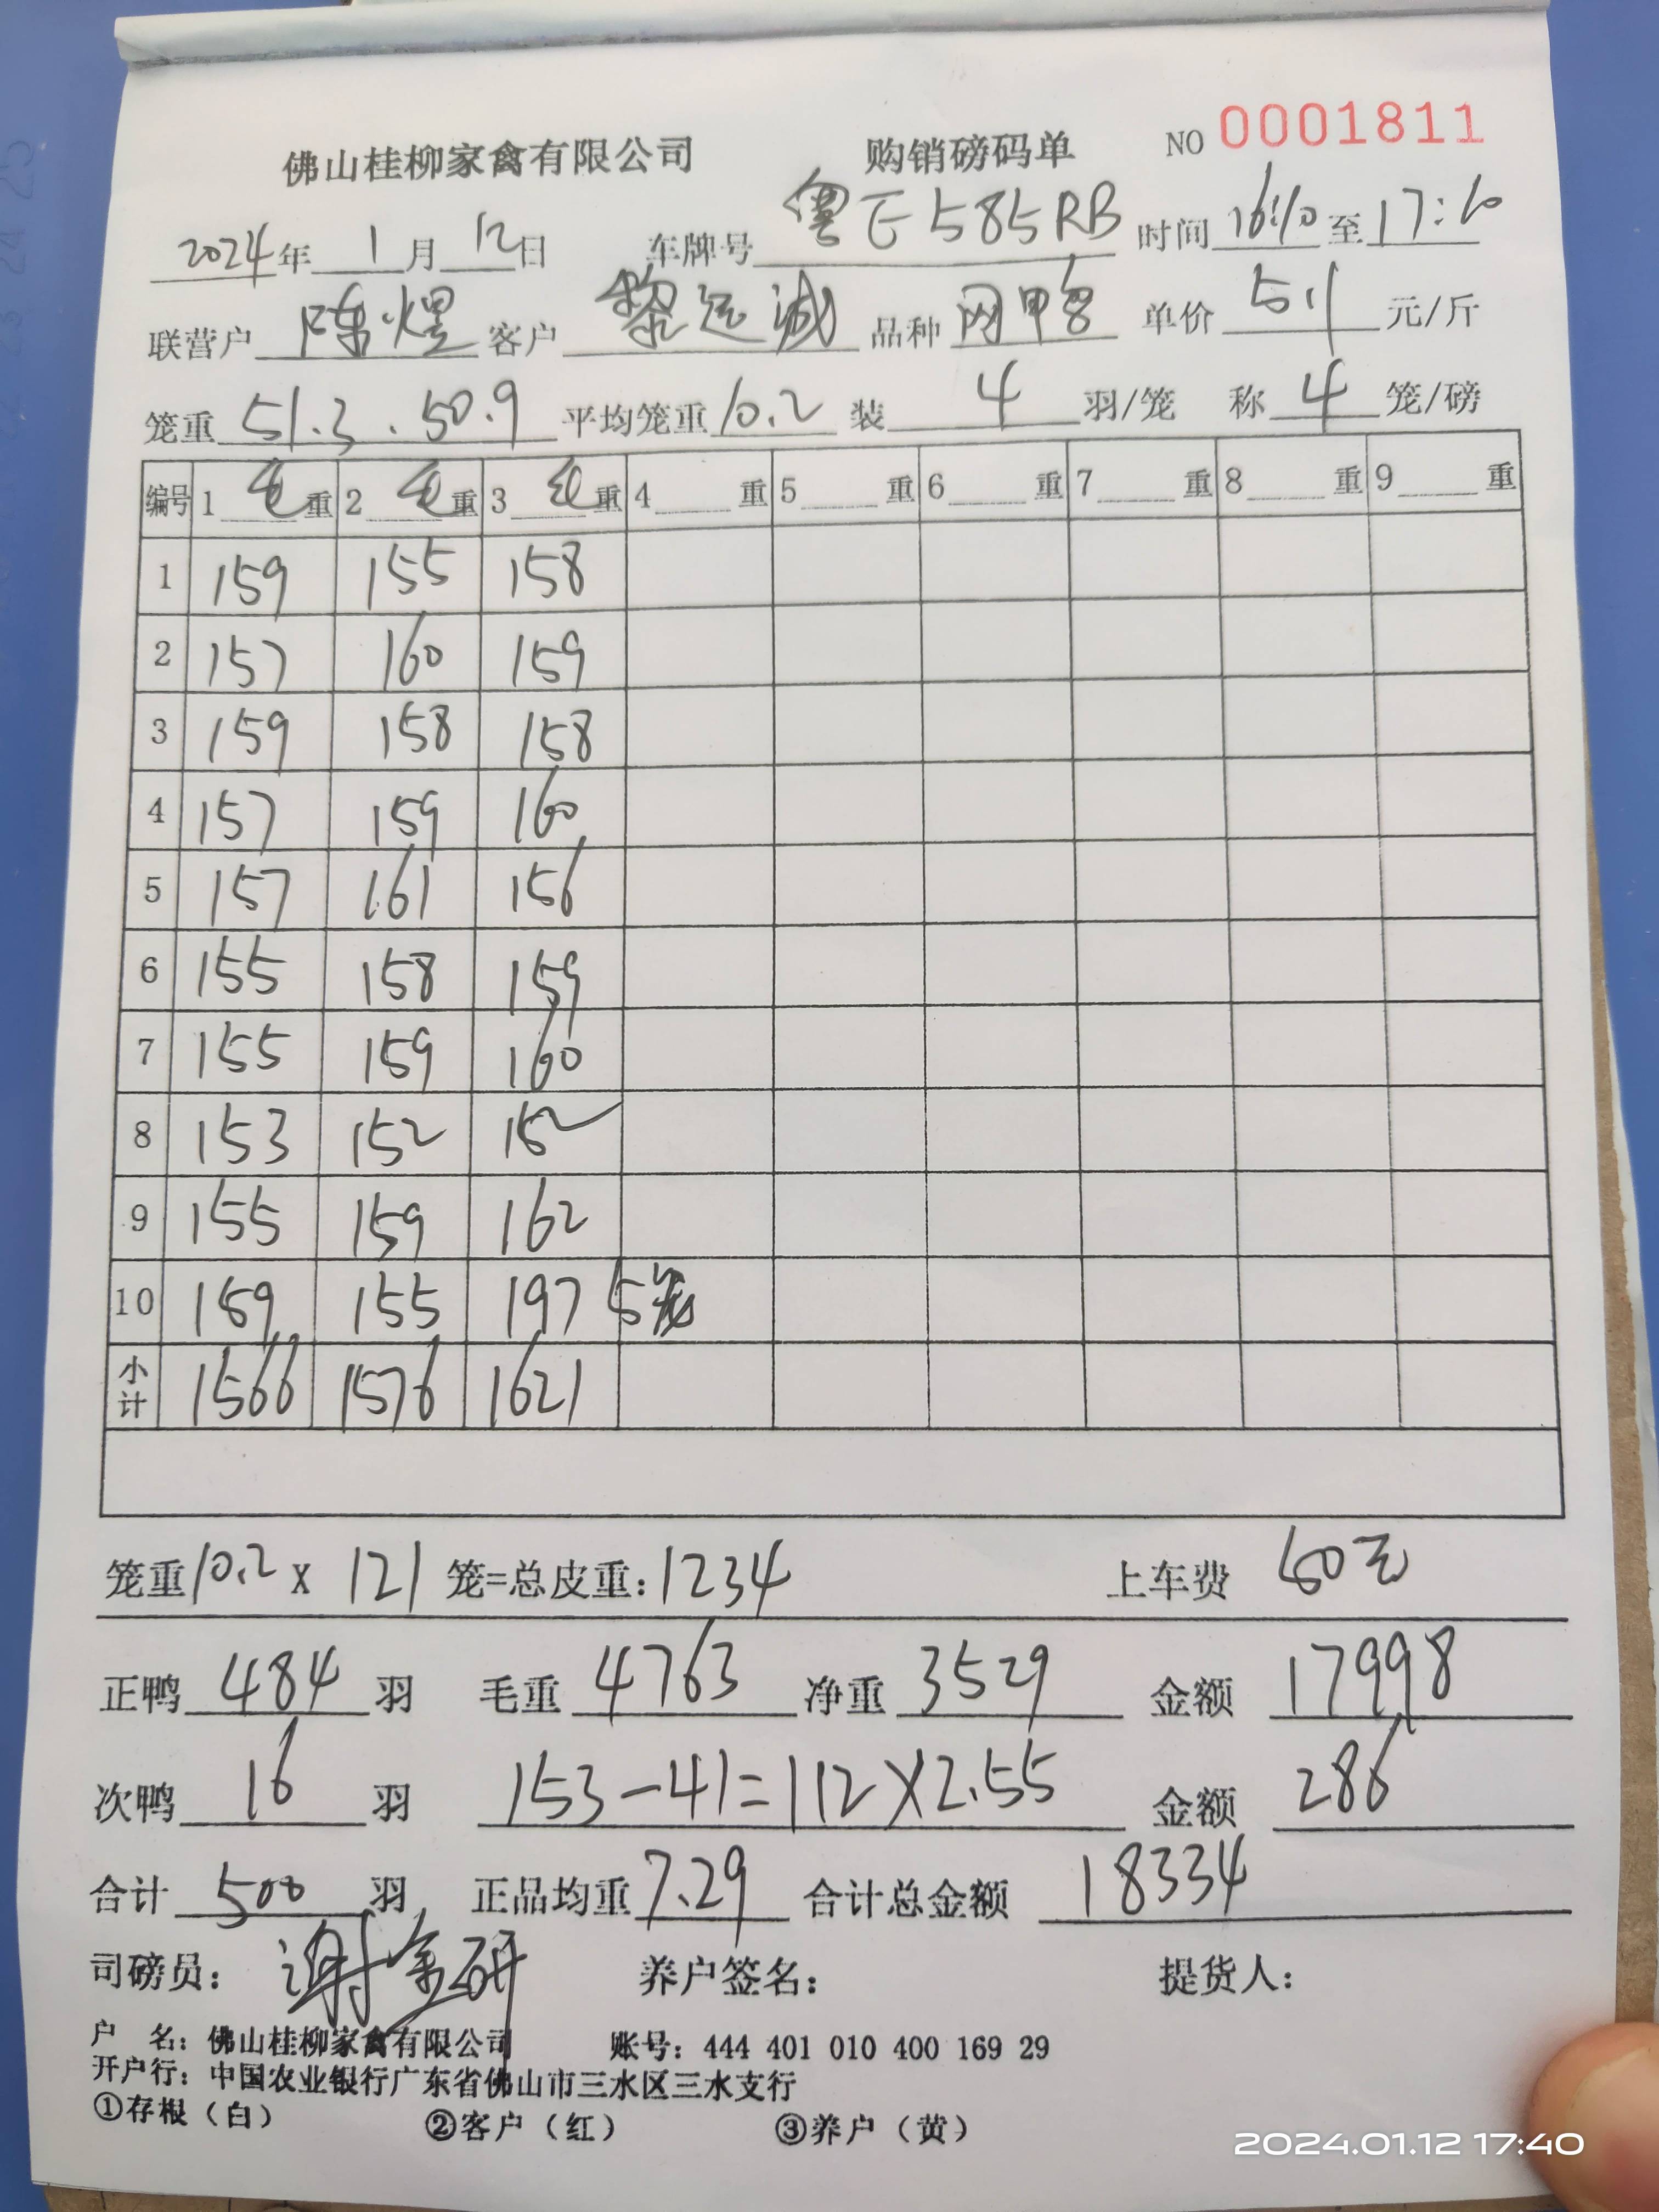 佛山桂柳家禽有限公司 购销磅码单 NO 0001811
2024年 1月 12日 车牌号 粤E585RB 时间 16:10 至 17:10
联营户 陈煜 客户 黎运诚 品种 网甲 单价 5.1 元/斤
笼重 51.3 . 50.9 平均笼重 10.2 装 4 羽/笼 称 4 笼/磅
编号 1 毛重 2 毛重 3 毛重 4 重 5 重 6 重 7 重 8 重 9 重
1 159 155 158
2 157 160 159
3 159 158 158
4 157 159 160
5 157 161 156
6 155 158 159
7 155 159 160
8 153 152 152
9 155 159 162
10 159 155 197 5笼
小计 1566 1576 1621
笼重10.2 X 121 笼=总皮重:1234 上车费 50元
正鸭 484 羽 毛重 4763 净重 3529 金额 17998
次鸭 16 羽 153-41=112X2.55 金额 286
合计 500 羽 正品均重 7.29 合计总金额 18334
司磅员: 谢金研 养户签名: 提货人:
户 名: 佛山桂柳家禽有限公司 账号: 444 401 010 400 169 29
开户行: 中国农业银行广东省佛山市三水区三水支行
①存根(白) ②客户(红) ③养户(黄)
2024.01.12 17:40